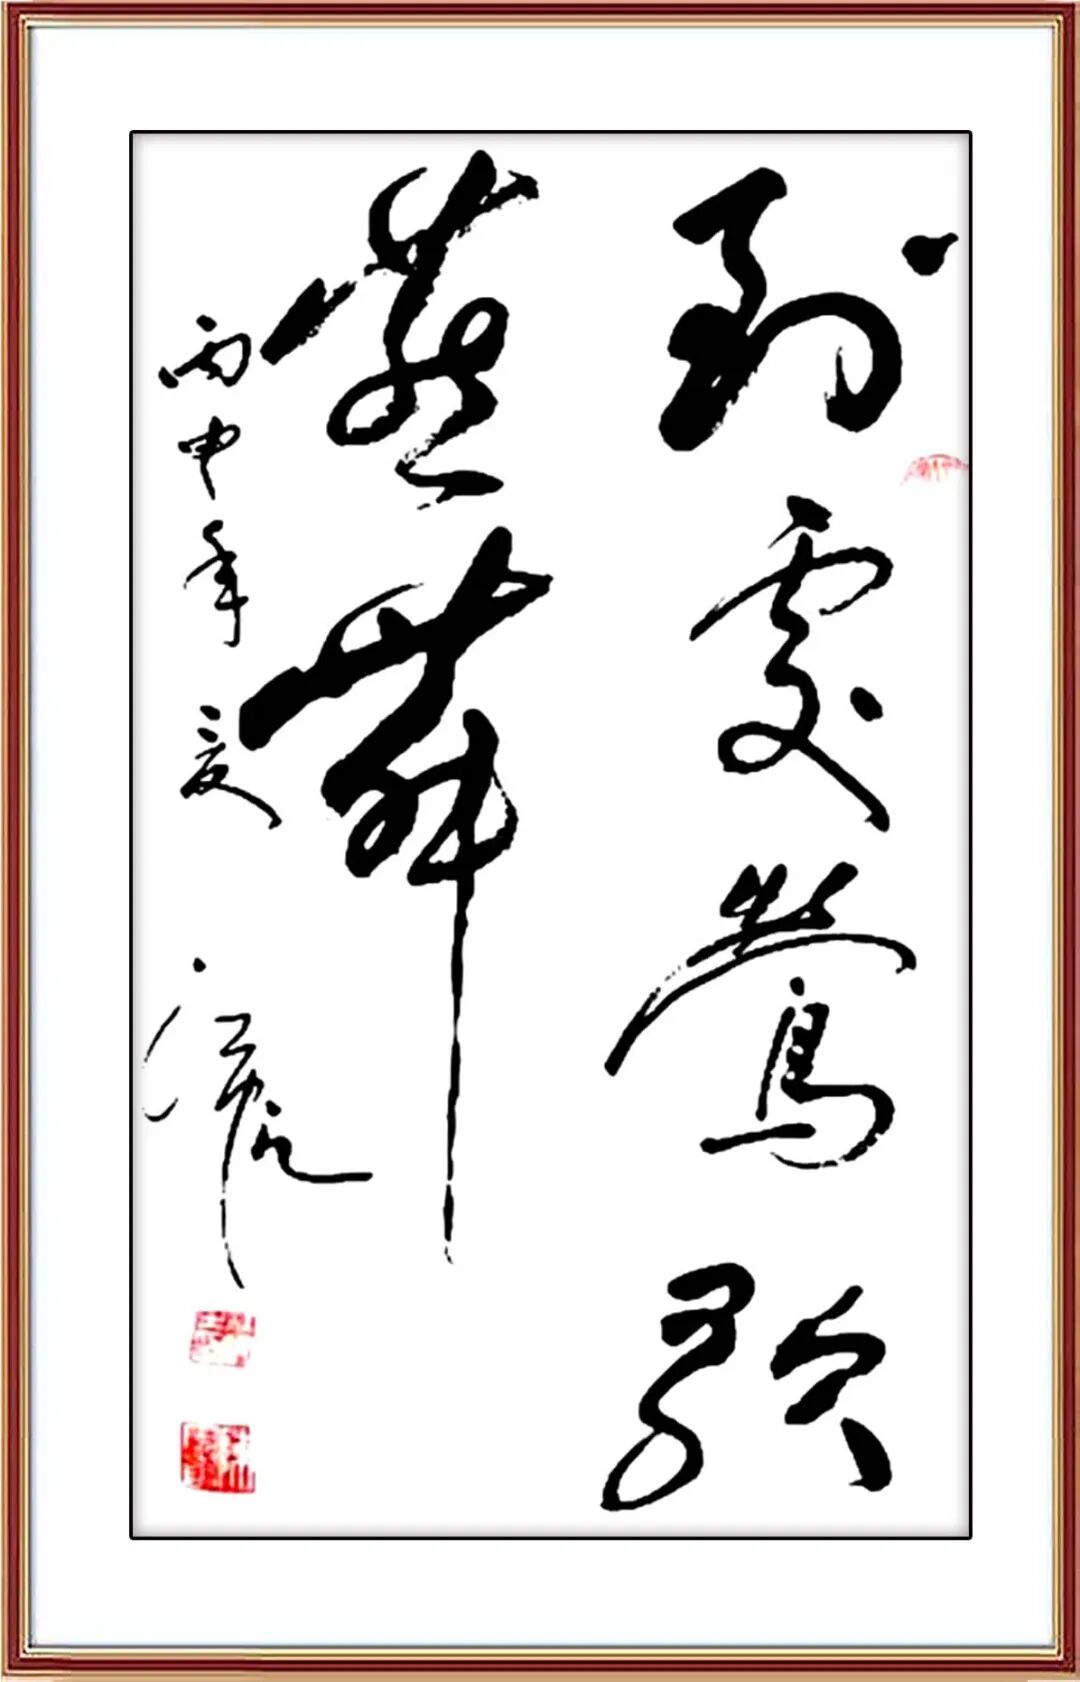 到處鶯歌
燕舞
丙申年夏